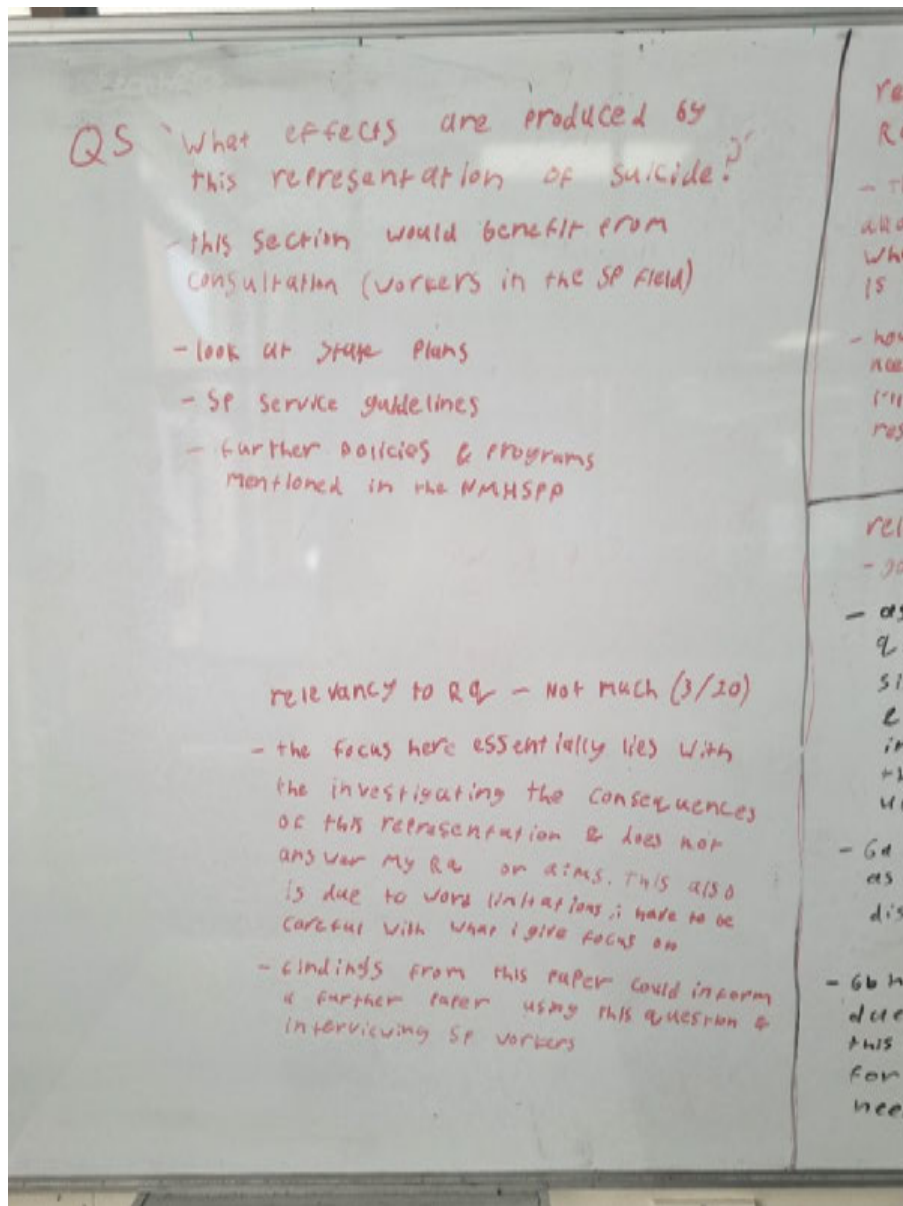 Q5 'What effects are produced by
this representation of suicide?'
- this section would benefit from
consultation (workers in the SP field)
- look at state plans
- SP service guidelines
- further policies & programs
mentioned in the NMHSPP
relevancy to RQ - Not much (3/20)
- the focus here essentially lies with
the investigating the consequences
of this representation & does not
answer my RQ or aims. This also
is due to word limitations, i have to be
careful with what i give focus on
- findings from this paper could inform
a further paper using this question &
interviewing SP workers
re
R
- T
wh
is
- how
nee
res
rel
- as
q
si
e
in
- 6a
as
dis
- 6b
due
this
for
nee